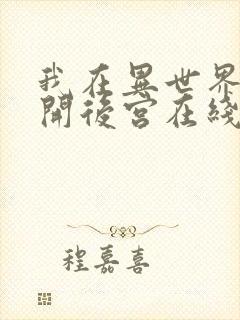 我在異世界
開後宮在綫
程嘉喜